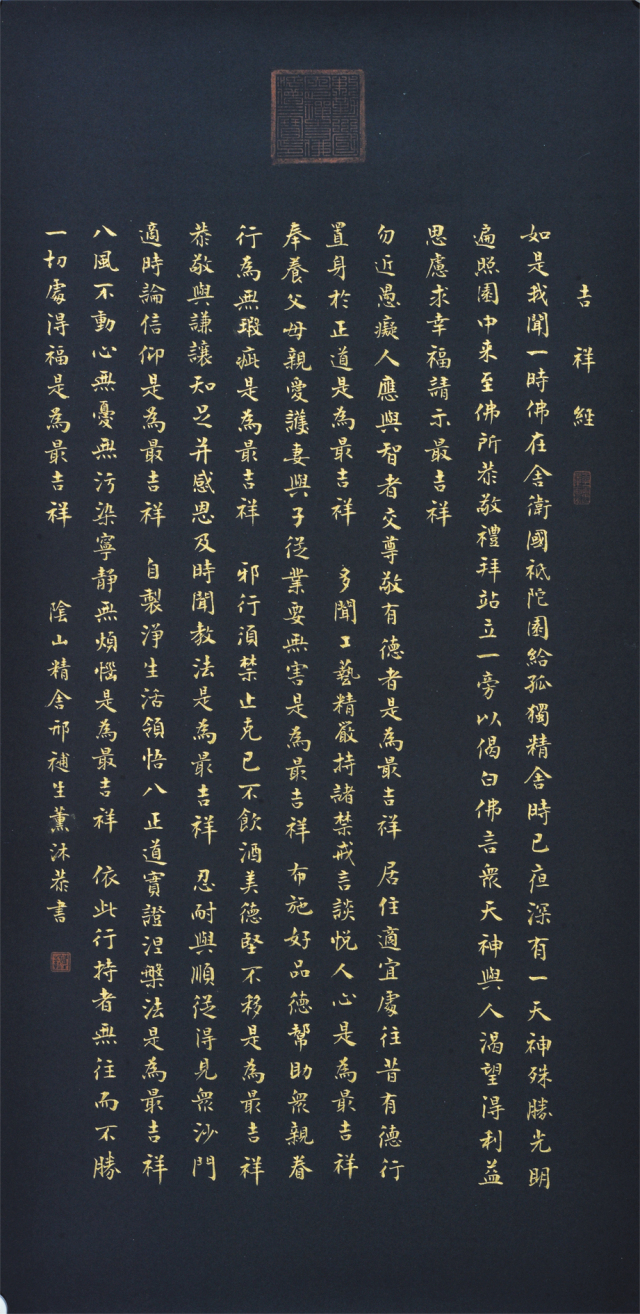 吉祥經
如是我聞一時佛在舍衛國祗陀園給孤獨精舍時已夜深有一天神殊勝光明
遍照園中来至佛所恭敬禮拜站立一旁以偈白佛言衆天神與人渴望得利益
思慮求幸福請示最吉祥
勿近愚癡人應與智者交尊敬有德者是為最吉祥 居住適宜處往昔有德行
置身於正道是為最吉祥 多聞工藝精嚴持諸禁戒言談悦人心是為最吉祥
奉養父母親愛護妻與子從業要無害是為最吉祥 布施好品德幫助衆親眷
行為無瑕疵是為最吉祥 邪行須禁止克己不飲酒美德堅不移是為最吉祥
恭敬與謙讓知足并感恩及時聞教法是為最吉祥 忍耐與順從得見衆沙門
適時論信仰是為最吉祥 自製淨生活領悟八正道實證涅槃法是為最吉祥
八風不動心無憂無污染寧静無煩惱是為最吉祥 依此行持者無往而不勝
一切處得福是為最吉祥 陰山精舍邢補生薰沐恭書